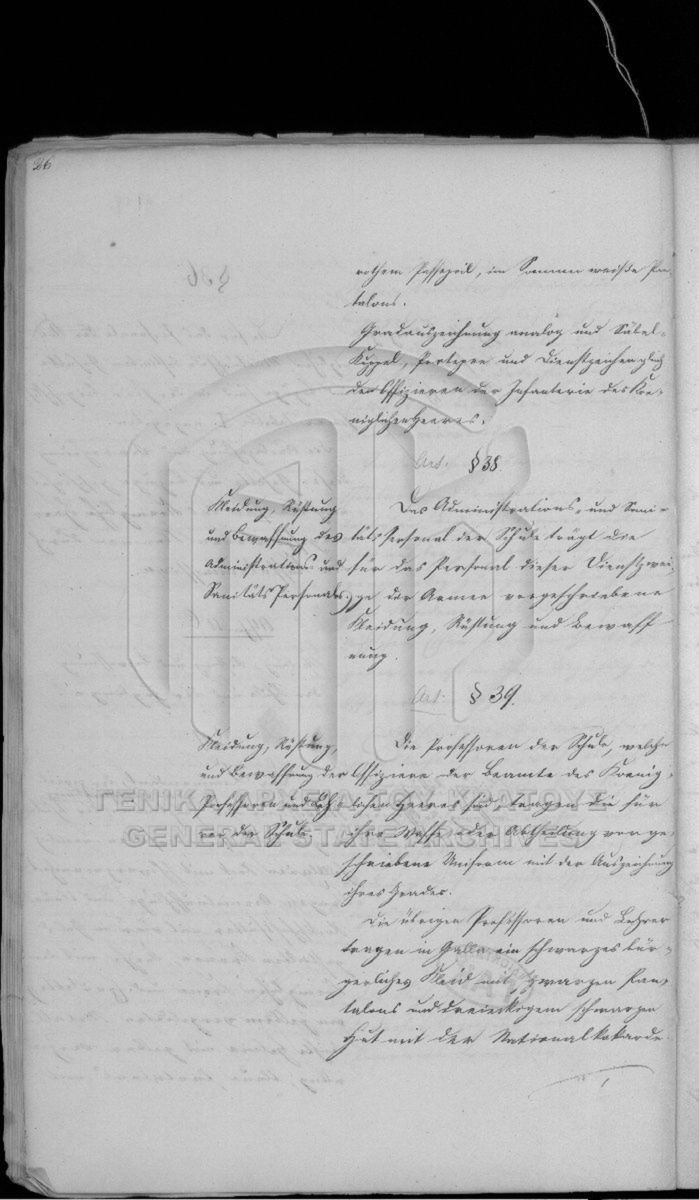 26
rothem Passepoil, im Sommer weiße Pan-
talons.
Gradauszeichnung analog und Säbel-
Kuppel, Portepee und Dienstzeichen gleich
den Offizieren der Infanterie des Koe-
niglichen Heeres.
Art. § 38.
Kleidung, Rüstung
und Bewaffnung des
Administrations- und
Sanitäts Personals.
Das Administrations- und Sani-
täts Personal der Schule trägt die
für das Personal dieser Dienstzwei-
ge der Armee vorgeschriebene
Kleidung, Rüstung und Bewaff-
nung.
Art. § 39.
Kleidung, Rüstung,
und Bewaffnung der
Professoren und Leh-
rer der Schule.
Die Professoren der Schule, welche
Offiziere oder Beamte des Koenig-
lichen Heeres sind, tragen die für
ihre Waffe oder Abtheilung vorge-
schriebene Uniform mit der Auszeichnung
ihres Grades.
Die übrigen Professoren und Lehrer
tragen in Galla ein schwarzes bür-
gerliches Kleid mit schwarzen Pan-
talons und dreieckigem schwarzen
Hut mit der Nationalkokarde.
ΓΕΝΙΚΑ ΑΡΧΕΙΑ ΤΟΥ ΚΡΑΤΟΥΣ
GENERAL STATE ARCHIVES